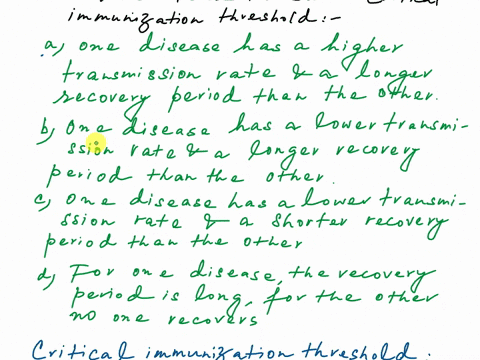 Critical
immunization threshold:-
a) one disease has a higher
transmission rate & a longer
recovery period than the other.
b) One disease has a lower transmi-
ssion rate & a longer recovery
period than the other.
c) One disease has a lower transmi-
ssion rate & a shorter recovery
period than the other
d) For one disease, the recovery
period is long, for the other
no one recovers
Critical immunization threshold: